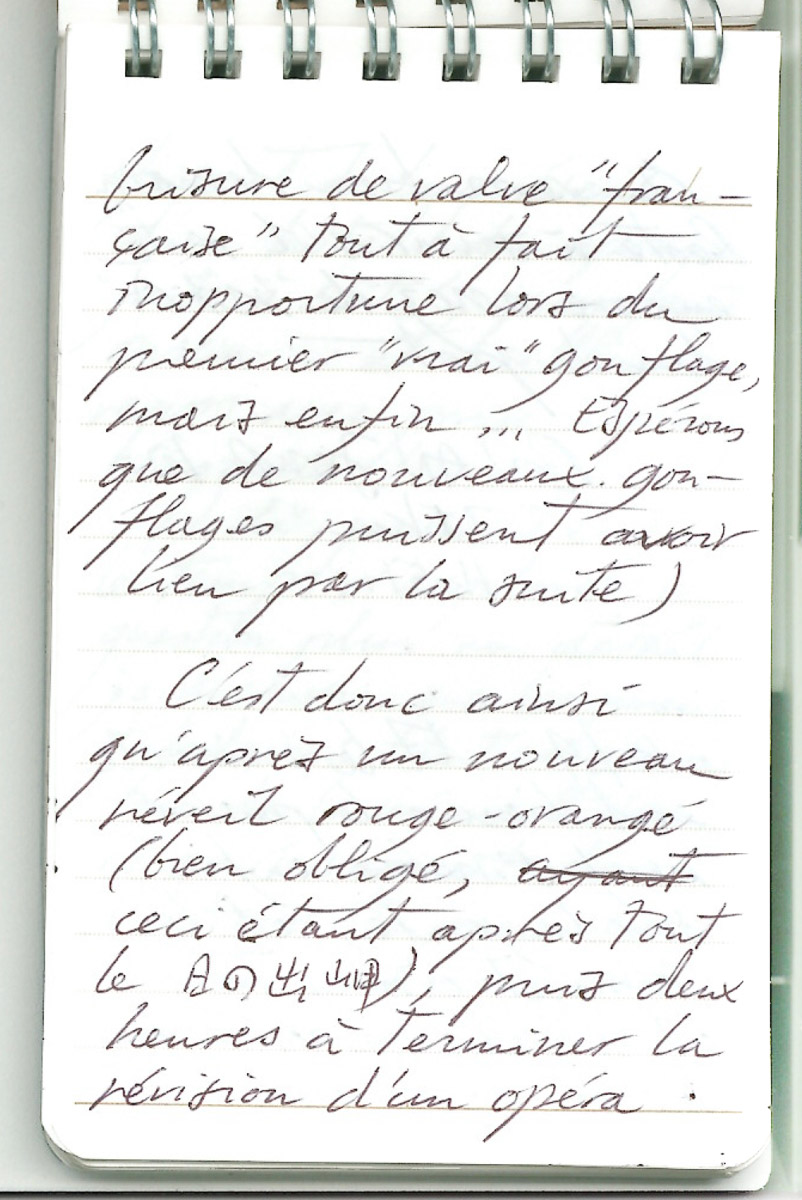 brisure de valve "fran-
çaise" tout à fait
inopportune lors du
premier "vrai" gonflage,
mais enfin... Espérons
que de nouveaux gon-
flages puissent avoir
lieu par la suite)
C'est donc ainsi
qu'après un nouveau
réveil rouge-orangé
(bien obligé, ayant
ceci étant après tout
le 日の出岬), puis deux
heures à terminer la
révision d'un opéra.